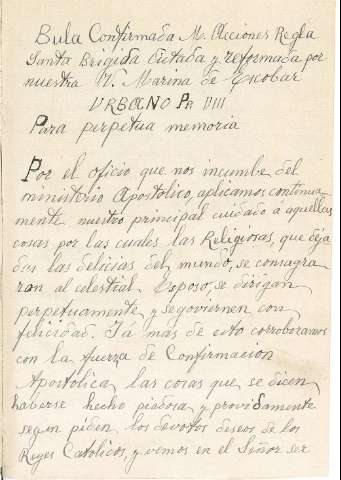 Bula Confirmada M. Acciones Regla
Santa Brigida citada y reformada por
nuestra V. Marina de Escobar
URBANO Pa VIII
Para perpetua memoria
Por el oficio que nos incumbe del
ministerio Apostolico, aplicamos continua-
mente nuestro principal cuidado á aquellas
cosas por las cuales las Religiosas, que deja
das las delicias del mundo, se consagra
ron al celestial Esposo, se dirigan
perpetuamente y segoviernen con
felicidad. Já mas de esto corroboramos
con la fuerza de Confirmacion
Apostolica las cosas que se dicen
haberse hecho piadosa y providamente
segun piden los devotos deseos de los
Reyes Catolicos, y vemos en el Señor ser